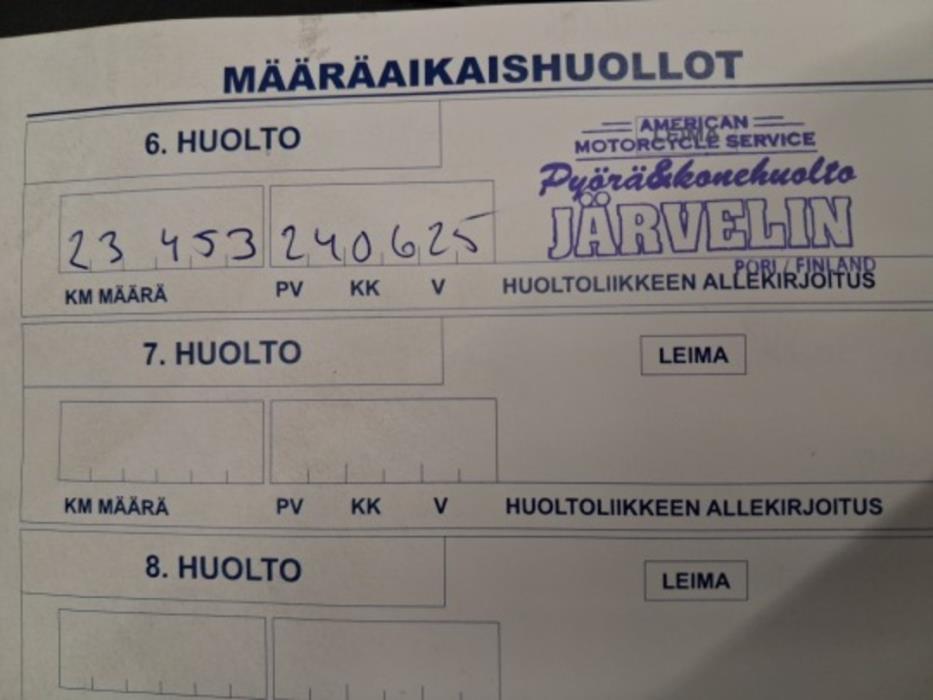 MÄÄRÄAIKAISHUOLLOT
6. HUOLTO
LEIMA
AMERICAN
MOTORCYCLE SERVICE
Pyörä&konehuolto
JÄRVELIN
PORI / FINLAND
23 453 240625
KM MÄÄRÄ PV KK V HUOLTOLIIKKEEN ALLEKIRJOITUS
7. HUOLTO LEIMA
KM MÄÄRÄ PV KK V HUOLTOLIIKKEEN ALLEKIRJOITUS
8. HUOLTO LEIMA